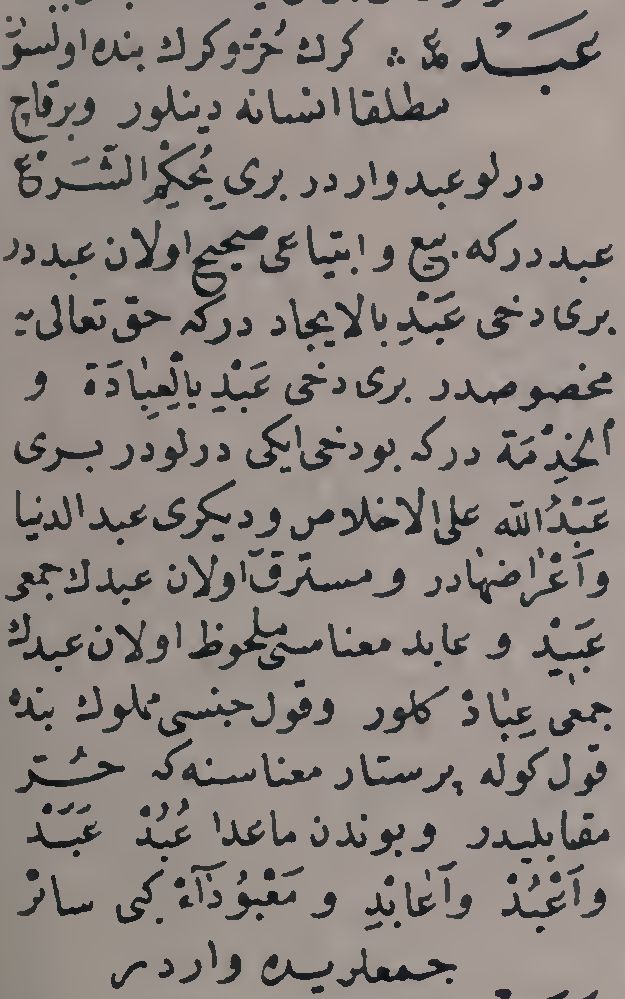 عَبْد ع ؞ كرك حُرّ وكرك بنده اولسون
مطلقا انسانه دينلور وبرقاچ
درلو عبد واردر برى بِحُكْمِ الشَّرْع
عبددركه بيع و ابتياعى صحيح اولان عبددر
برى دخى عَبْدِ بالايجاد دركه حق تعالى يه
مخصوصدر برى دخى عَبْدِ بِالْعِبَادَة و
الْخِدْمَة دركه بودخى ايكى درلودر برى
عَبْدُ الله على الاخلاص وديكرى عبد الدنيا
وَاَغْرَاضهادر ومسترقّ اولان عبدك جمعى
عَبِيْد و عابد معناسى ملحوظ اولان عبدك
جمعى عِبَادْ كلور وقول جنسى مملوك بنده
قول كوله پرستار معناسنه كه حُرّ
مقابليدر وبوندن ماعدا عُبُدْ عَبَدْ
وَاَعْبُدْ وَاَعَابِدِ و مَعْبُودَآءْ كبى سائر
جمعلريده واردر